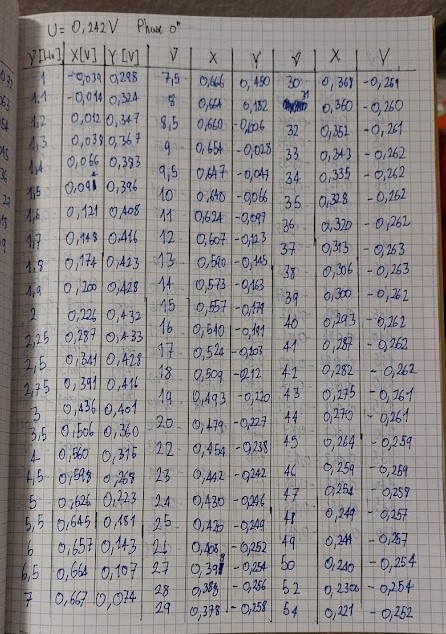 U = 0,242V Phase 0°
X[V] Y[V] ν X Y ν X Y
1 -0,039 0,298 7,5 0,666 30 0,369 -0,261
1,1 -0,014 0,324 8 0,664 31 0,360 -0,260
1,2 0,012 0,347 8,5 0,660 -0,006 32 0,352 -0,261
1,3 0,039 0,367 9 0,654 -0,028 33 0,343 -0,262
1,4 0,066 0,383 9,5 0,647 -0,047 34 0,335 -0,262
1,5 0,094 0,396 10 0,640 -0,066 35 0,328 -0,262
1,6 0,121 0,408 11 0,624 -0,097 36 0,320 -0,262
1,7 0,148 0,416 12 0,607 -0,123 37 0,313 -0,263
1,8 0,174 0,423 13 0,590 -0,145 38 0,306 -0,263
1,9 0,200 0,428 14 0,573 -0,163 39 0,300 -0,262
2 0,226 0,432 15 0,557 -0,179 40 0,293 -0,262
2,25 0,287 0,433 16 0,540 -0,191 41 0,287 -0,262
2,5 0,341 0,428 17 0,524 -0,203 42 0,282 -0,262
2,75 0,391 0,416 18 0,509 -0,212 43 0,275 -0,261
3 0,436 0,401 19 0,493 -0,220 44 0,270 -0,261
3,5 0,506 0,360 20 0,479 -0,227 45 0,264 -0,259
4 0,560 0,315 22 0,454 -0,238 46 0,259 -0,259
4,5 0,598 0,268 23 0,442 -0,242 47 0,254 -0,258
5 0,626 0,223 24 0,430 -0,246 48 0,249 -0,257
5,5 0,645 0,181 25 0,420 -0,249 49 0,244 -0,257
6 0,657 0,143 26 0,408 -0,252 50 0,240 -0,254
6,5 0,664 0,107 27 0,398 -0,254 52 0,2300 -0,254
7 0,667 0,074 28 0,388 -0,256 54 0,221 -0,252
29 0,378 -0,258